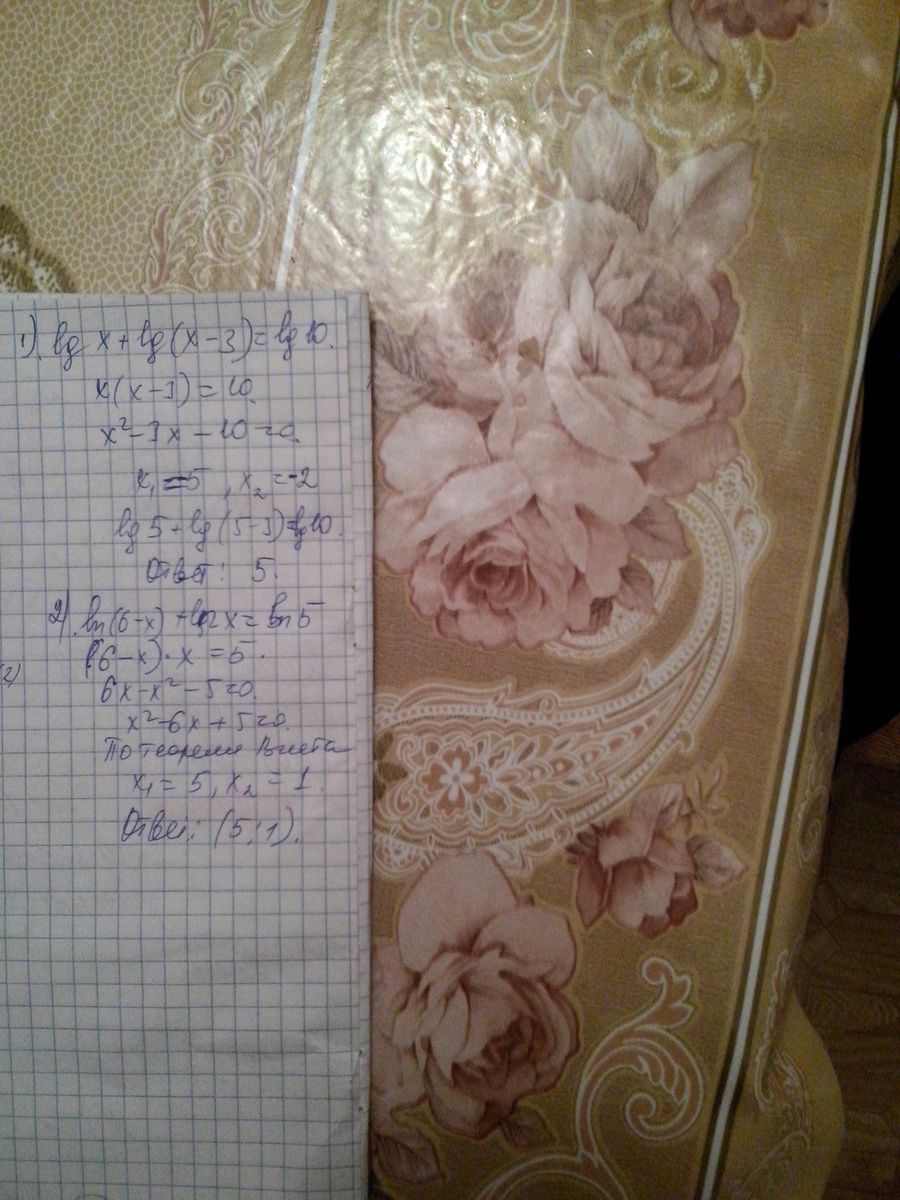 1) lg x + lg (x - 3) = lg 10.
x(x - 3) = 10.
x² - 3x - 10 = 0.
x₁ = 5, x₂ = -2
lg 5 + lg (5 - 3) = lg 10.
Ответ: 5.
2) ln(6 - x) + ln x = ln 5
(6 - x) · x = 5.
6x - x² - 5 = 0.
x² - 6x + 5 = 0.
По теореме Виета
x₁ = 5, x₂ = 1.
Ответ: (5; 1).